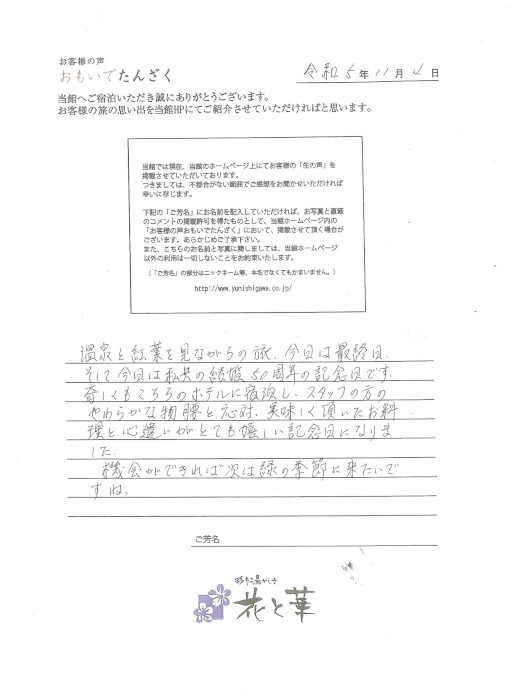 お客様の声
おもいでたんざく
令和5年11月4日
当館へご宿泊いただき誠にありがとうございます。
お客様の旅の思い出を当館HPにてご紹介させていただければと思います。
当館では現在、当館のホームページ上にてお客様の「生の声」を
掲載させていただいております。
つきましては、不都合がない範囲でご感想をお聞かせいただければ
幸いに存じます。
下記の「ご芳名」にお名前を記入していただければ、お写真と直筆
のコメントの掲載許可を得たものとして、当館ホームページ内の
「お客様の声おもいでたんざく」において、掲載させて頂く場合が
ございます。あらかじめご了承下さい。
また、こちらのお名前と写真に関しましては、当館ホームページ
以外の利用は一切しないことをお約束いたします。
（「ご芳名」の部分はニックネーム等、本名でなくてもかまいません。）
http://www.yunishigawa.co.jp/
温泉と紅葉を見ながらの旅、今日は最終日
そして今日は私共の結婚50周年の記念日です。
奇しくもこちらのホテルに宿泊し、スタッフの方の
やわらかな物腰と応対、美味しく頂いたお料
理と心遣いがとても嬉しい記念日になりま
した。
機会ができれば次は緑の季節に来たいで
すね。
ご芳名
彩り湯かしき
花と華